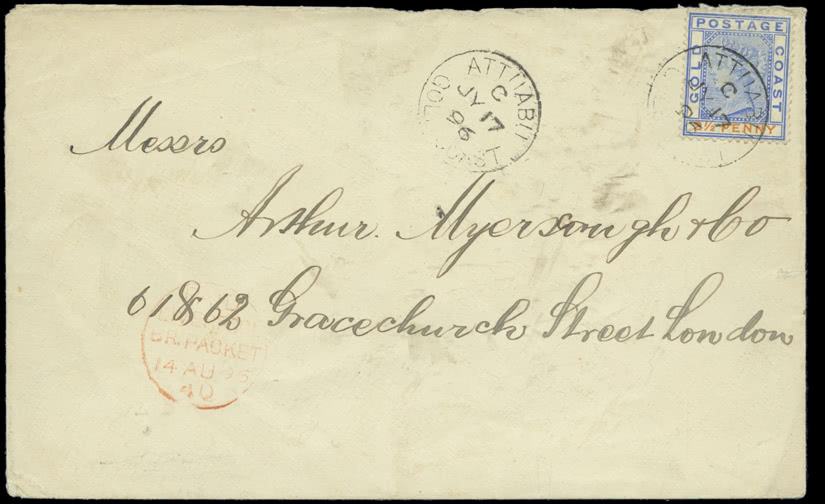 POSTAGE
GOLD
COAST
2½ PENNY
ATTUAB
C
17
ATTUABU
C
JY 17
96
COAST
Messrs
Arthur. Myersough & Co
61 & 62 Gracechurch Street London
BR. PACKET
14 AU 96